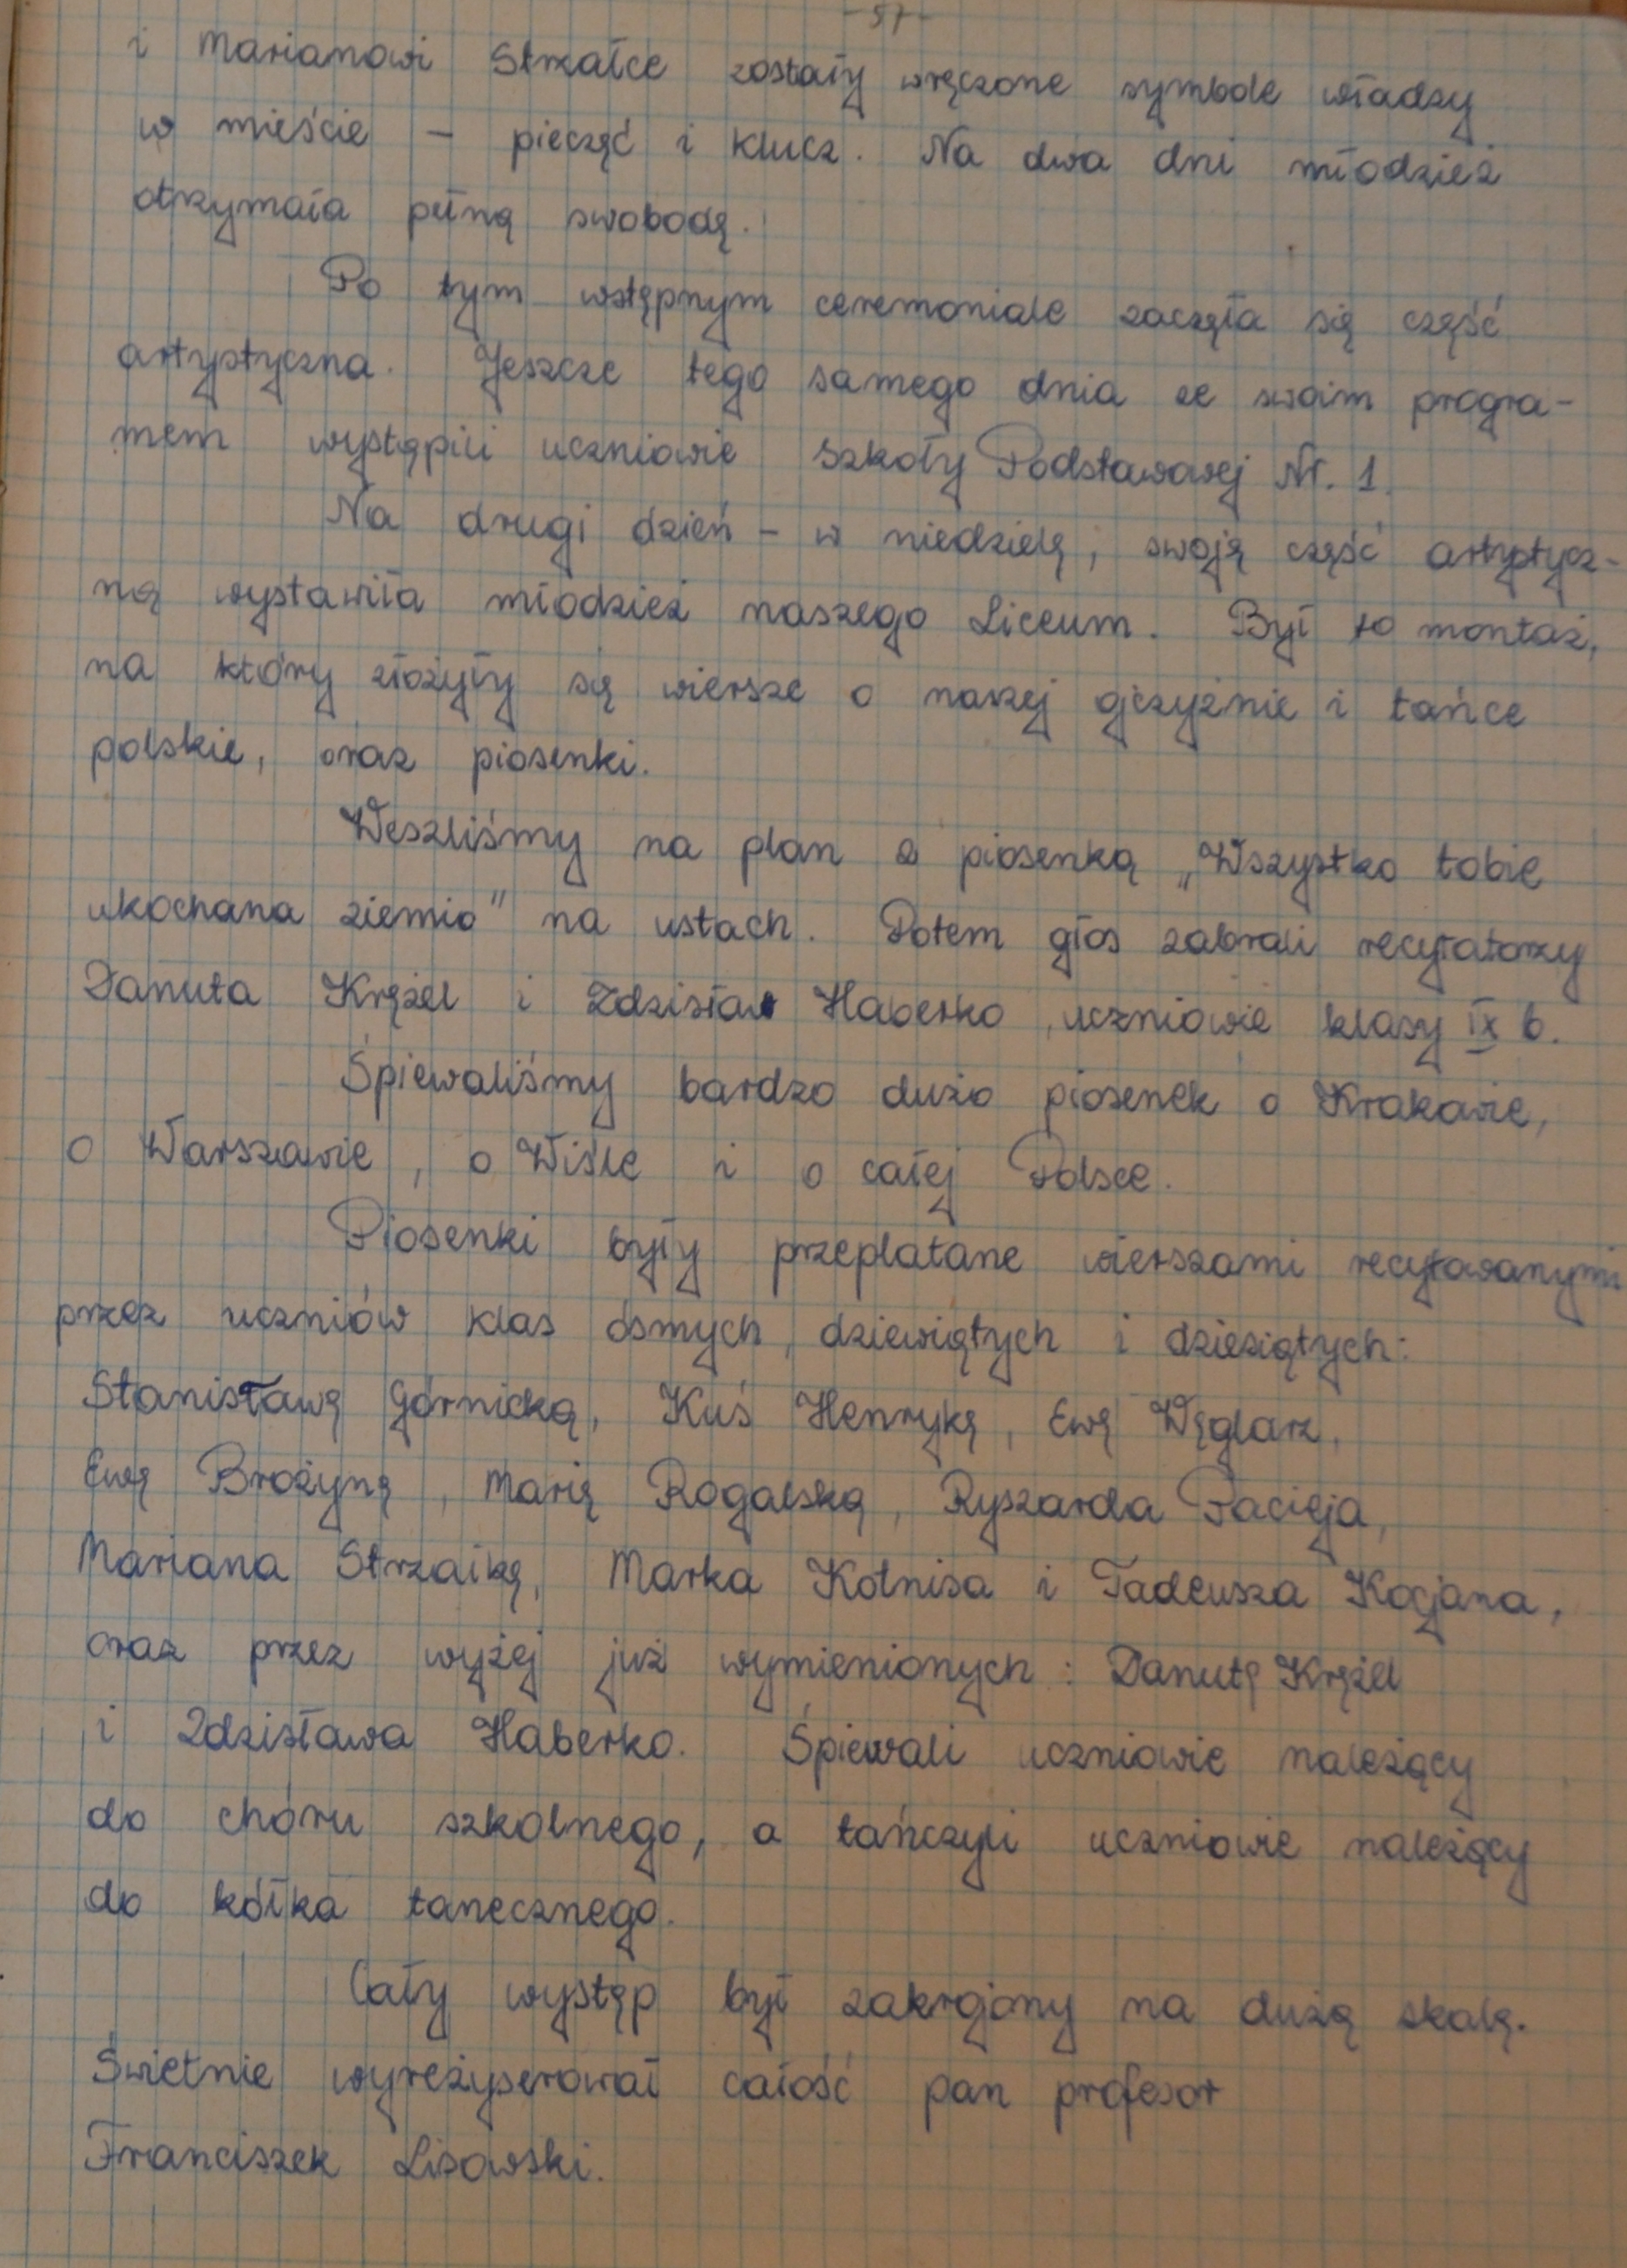 - 57 -
i Marianowi Strzałce zostały wręczone symbole władzy
w mieście – pieczęć i klucz. Na dwa dni młodzież
otrzymała pełną swobodę.
Po tym wstępnym ceremoniale zaczęła się część
artystyczna. Jeszcze tego samego dnia ze swoim progra-
mem wystąpili uczniowie Szkoły Podstawowej Nr. 1.
Na drugi dzień – w niedzielę, swoją część artystycz-
ną wystawiła młodzież naszego Liceum. Był to montaż,
na który złożyły się wiersze o naszej ojczyźnie i tańce
polskie, oraz piosenki.
Weszliśmy na plan z piosenką „Wszystko tobie
ukochana ziemio" na ustach. Potem głos zabrali recytatorzy
Danuta Krężel i Zdzisław Haberko, uczniowie klasy IX b.
Śpiewaliśmy bardzo dużo piosenek o Krakowie,
o Warszawie, o Wiśle i o całej Polsce.
Piosenki były przeplatane wierszami recytowanymi
przez uczniów klas ósmych, dziewiątych i dziesiątych:
Stanisławę Górnicką, Kuś Henrykę, Ewę Węglarz,
Ewę Brożynę, Marię Rogalską, Ryszarda Pacieja,
Mariana Strzałkę, Marka Kotnisa i Tadeusza Kocjana,
oraz przez wyżej już wymienionych: Danutę Krężel
i Zdzisława Haberko. Śpiewali uczniowie należący
do chóru szkolnego, a tańczyli uczniowie należący
do kółka tanecznego.
Cały występ był zakrojony na dużą skalę.
Świetnie wyreżyserował całość pan profesor
Franciszek Lisowski.